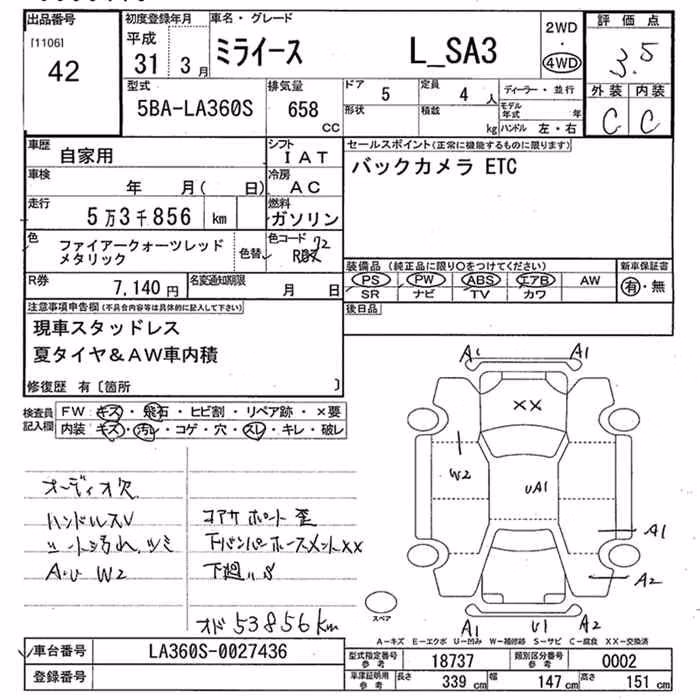 出品番号
[1106]
42
初度登録年月
平成
31 3月
車名・グレード
ミライース L_SA3
2WD
・
4WD
評価点
3.5
外装 内装
C C
型式
5BA-LA360S
排気量
658
cc
ドア
5
定員
4 人
形状
積載
kg
ディーラー・並行
モデル年式 年
ハンドル 左・右
車歴
自家用
シフト
IAT
車検
年 月( 日)
冷房
AC
走行
5万3千856 km
燃料
ガソリン
色
ファイアークォーツレッド
メタリック
色替
色コード
R72
R券
7,140円
名変通知期限
月 日
セールスポイント(正常に機能するものに限ります)
バックカメラ ETC
装備品 (純正品に限り○をつけてください)
PS PW ABS エアB AW
SR ナビ TV カワ
新車保証書
有・無
後日品
注意事項申告欄(不具合内容等は具体的に記入して下さい)
現車スタッドレス
夏タイヤ&AW車内積
修復歴 有〔箇所 〕
検査員
記入欄
FW:キズ・飛石・ヒビ割・リペア跡・×要
内装:キズ・汚レ・コゲ・穴・スレ・キレ・破レ
オーディオ欠
ハンドルスレ
シート汚れ、シミ
A・U W2
コアサポート歪
下廻りS
オド 53856km
A1 A1
××
W2
UA1
A1
A2
A1 U1 A2
スペア
A-キズ E-エクボ U-凹み W-補修跡 S-サビ C-腐食 XX-交換済
車台番号
LA360S-0027436
登録番号
型式指定番号
参考
18737
類別区分番号
参考
0002
車庫証明用
参考
長さ
339 cm
幅
147 cm
高さ
151 cm